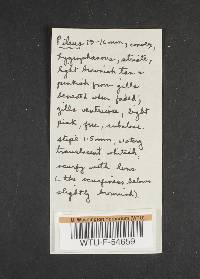 Pileus 13-16 mm, convex,
hygrophanous, striate,
light brownish tan &
pinkish from gills
beneath when faded,
gills ventricose, light
pink, free, subdist.
stipe 1.5 mm, watery
translucent whitish,
scurfy with lens
(the scurfiness below
slightly brownish)
WTU-F-54659